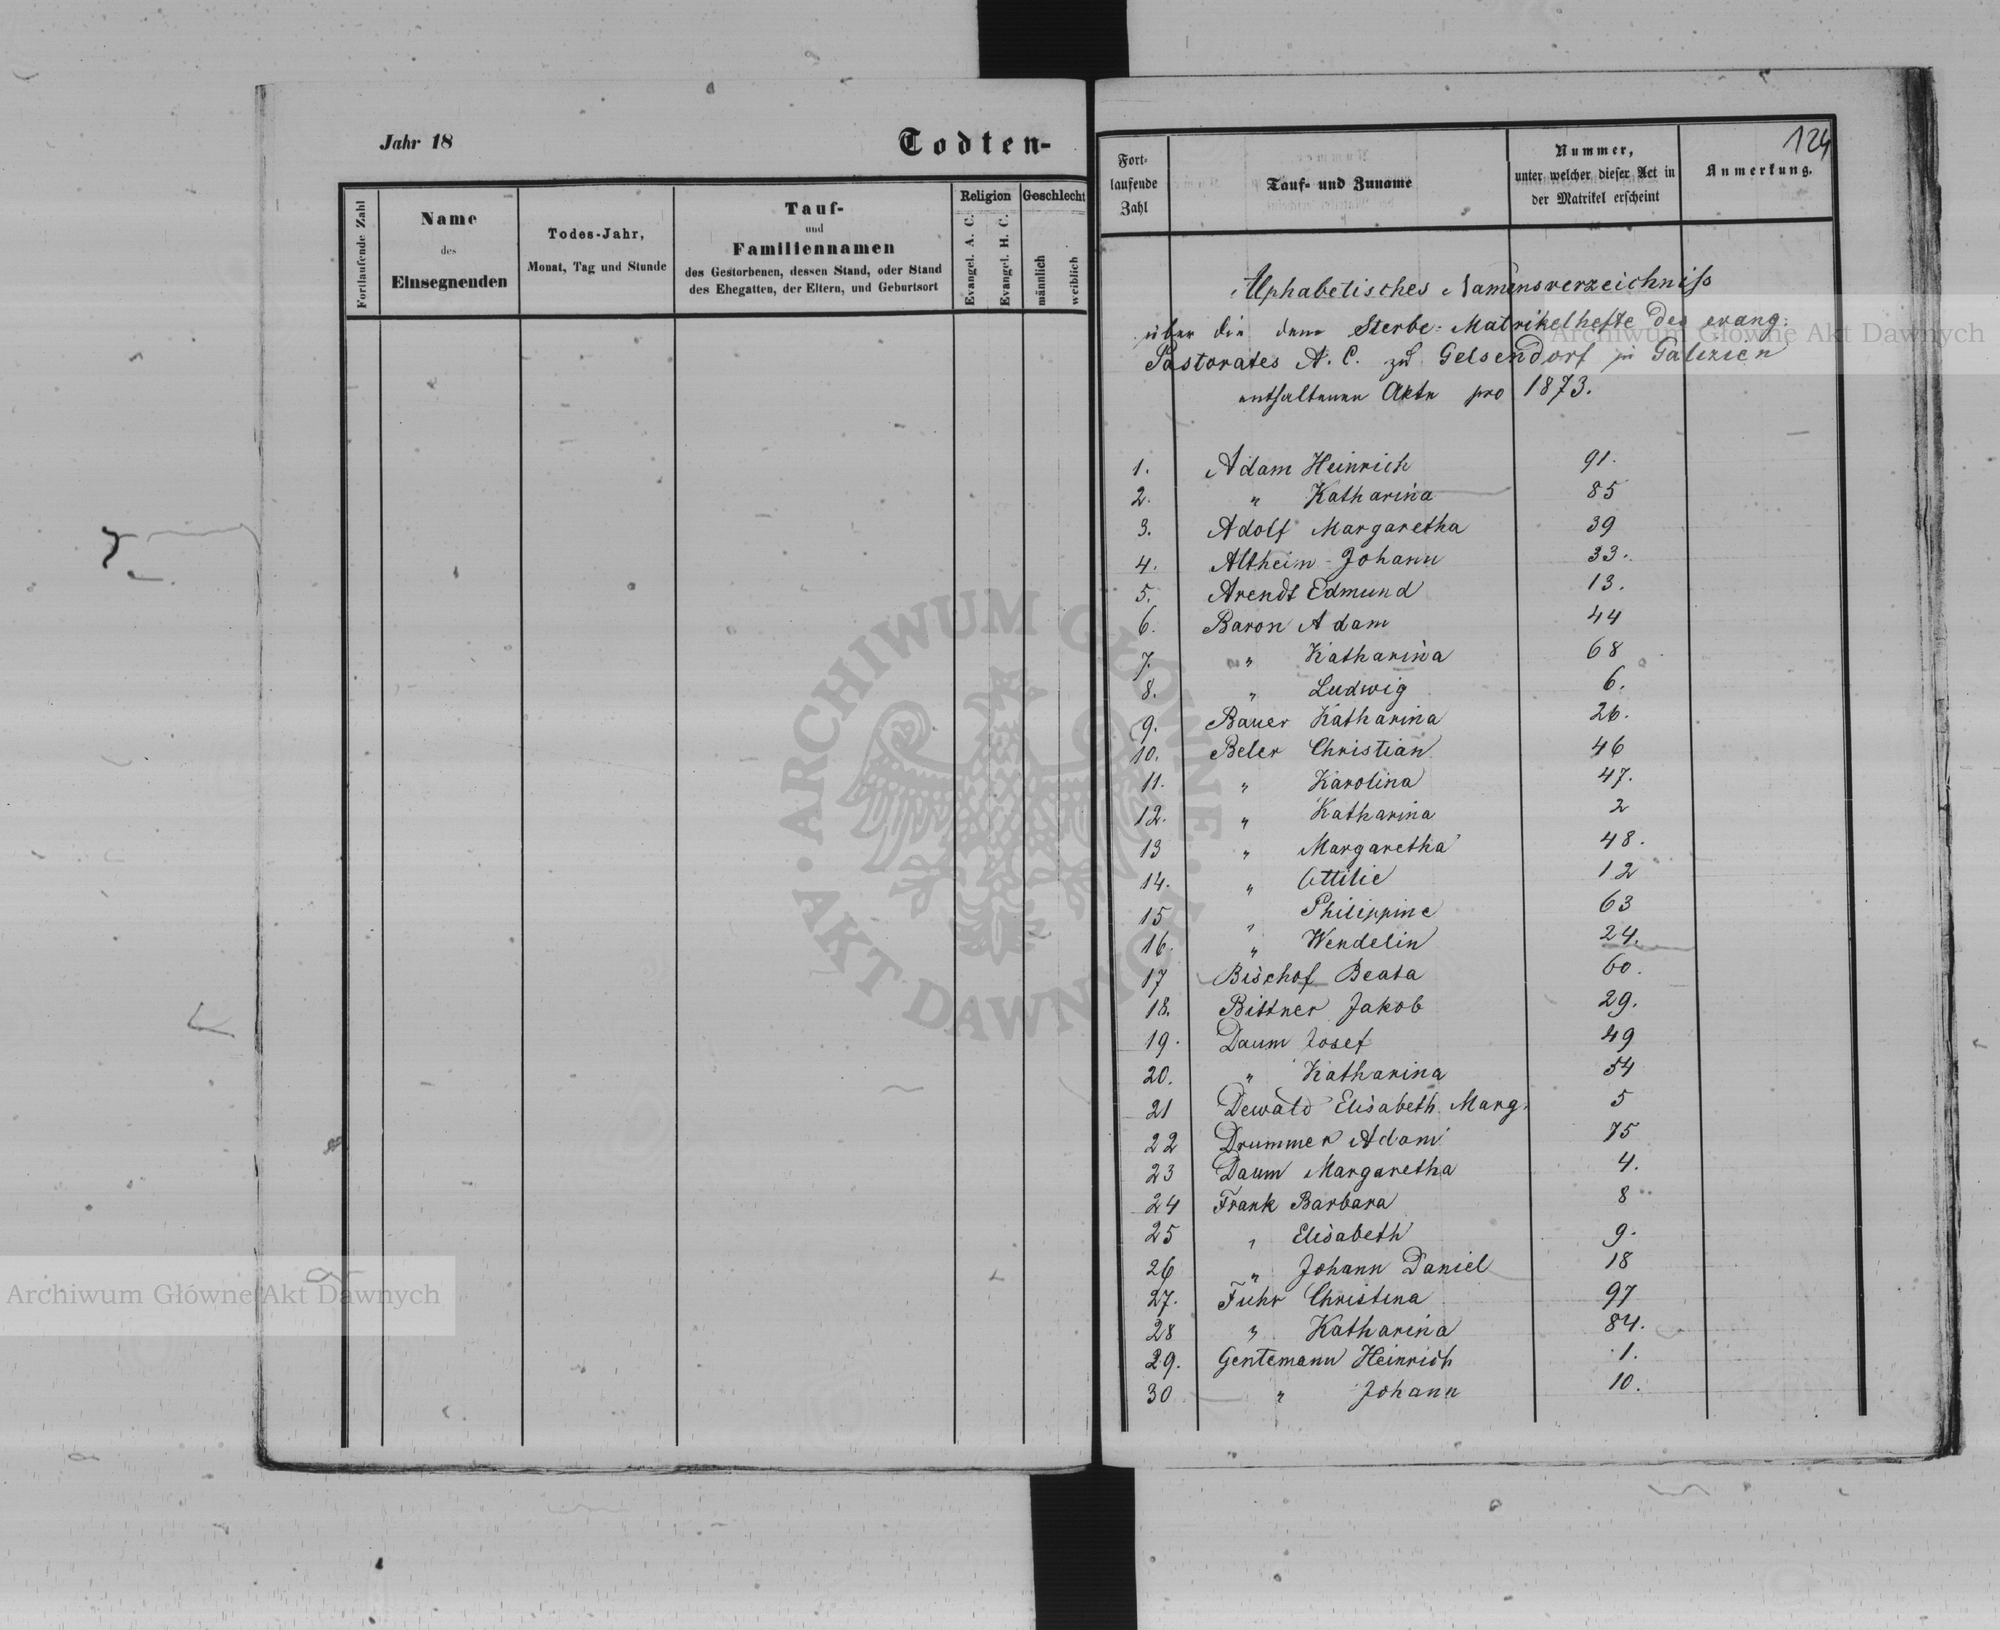 Jahr 18
Todten-
Fortlaufende Zahl
Name
des
Einsegnenden
Todes-Jahr,
Monat, Tag und Stunde
Tauf-
und
Familiennamen
des Gestorbenen, dessen Stand, oder Stand
des Ehegatten, der Eltern, und Geburtsort
Religion
Evangel. A. C.
Evangel. H. C.
Geschlecht
männlich
weiblich
124
Fort-
laufende
Zahl
Tauf- und Zuname
Nummer,
unter welcher dieser Act in
der Matrikel erscheint
Anmerkung.
Alphabetisches Namensverzeichniss
über die dem Sterbe-Matrikelhefte des evang:
Pastorates A. C. zu Gelsendorf in Galizien
enthaltenen Akte pro 1873.
1. Adam Heinrich 91.
2. " Katharina 85
3. Adolf Margaretha 39
4. Altheim Johann 33.
5. Arendt Edmund 13.
6. Baron Adam 44
7. " Katharina 68
8. " Ludwig 6.
9. Bauer Katharina 26.
10. Beler Christian 46
11. " Karolina 47.
12. " Katharina 2
13 " Margaretha 48.
14. " Ottilie 12
15 " Philippine 63
16. " Wendelin 24.
17 Bischof Beata 60.
18. Bittner Jakob 29.
19. Daum Josef 49
20. " Katharina 54
21 Dewald Elisabeth Marg. 5
22 Drummer Adam 75
23 Daum Margaretha 4.
24 Frank Barbara 8
25 " Elisabeth 9.
26 " Johann Daniel 18
27. Fuhr Christina 97
28 " Katharina 84.
29. Gentemann Heinrich 1.
30 " Johann 10.
ARCHIWUM GŁÓWNE · AKT DAWNYCH ·
Archiwum Główne Akt Dawnych
Archiwum Główne Akt Dawnych